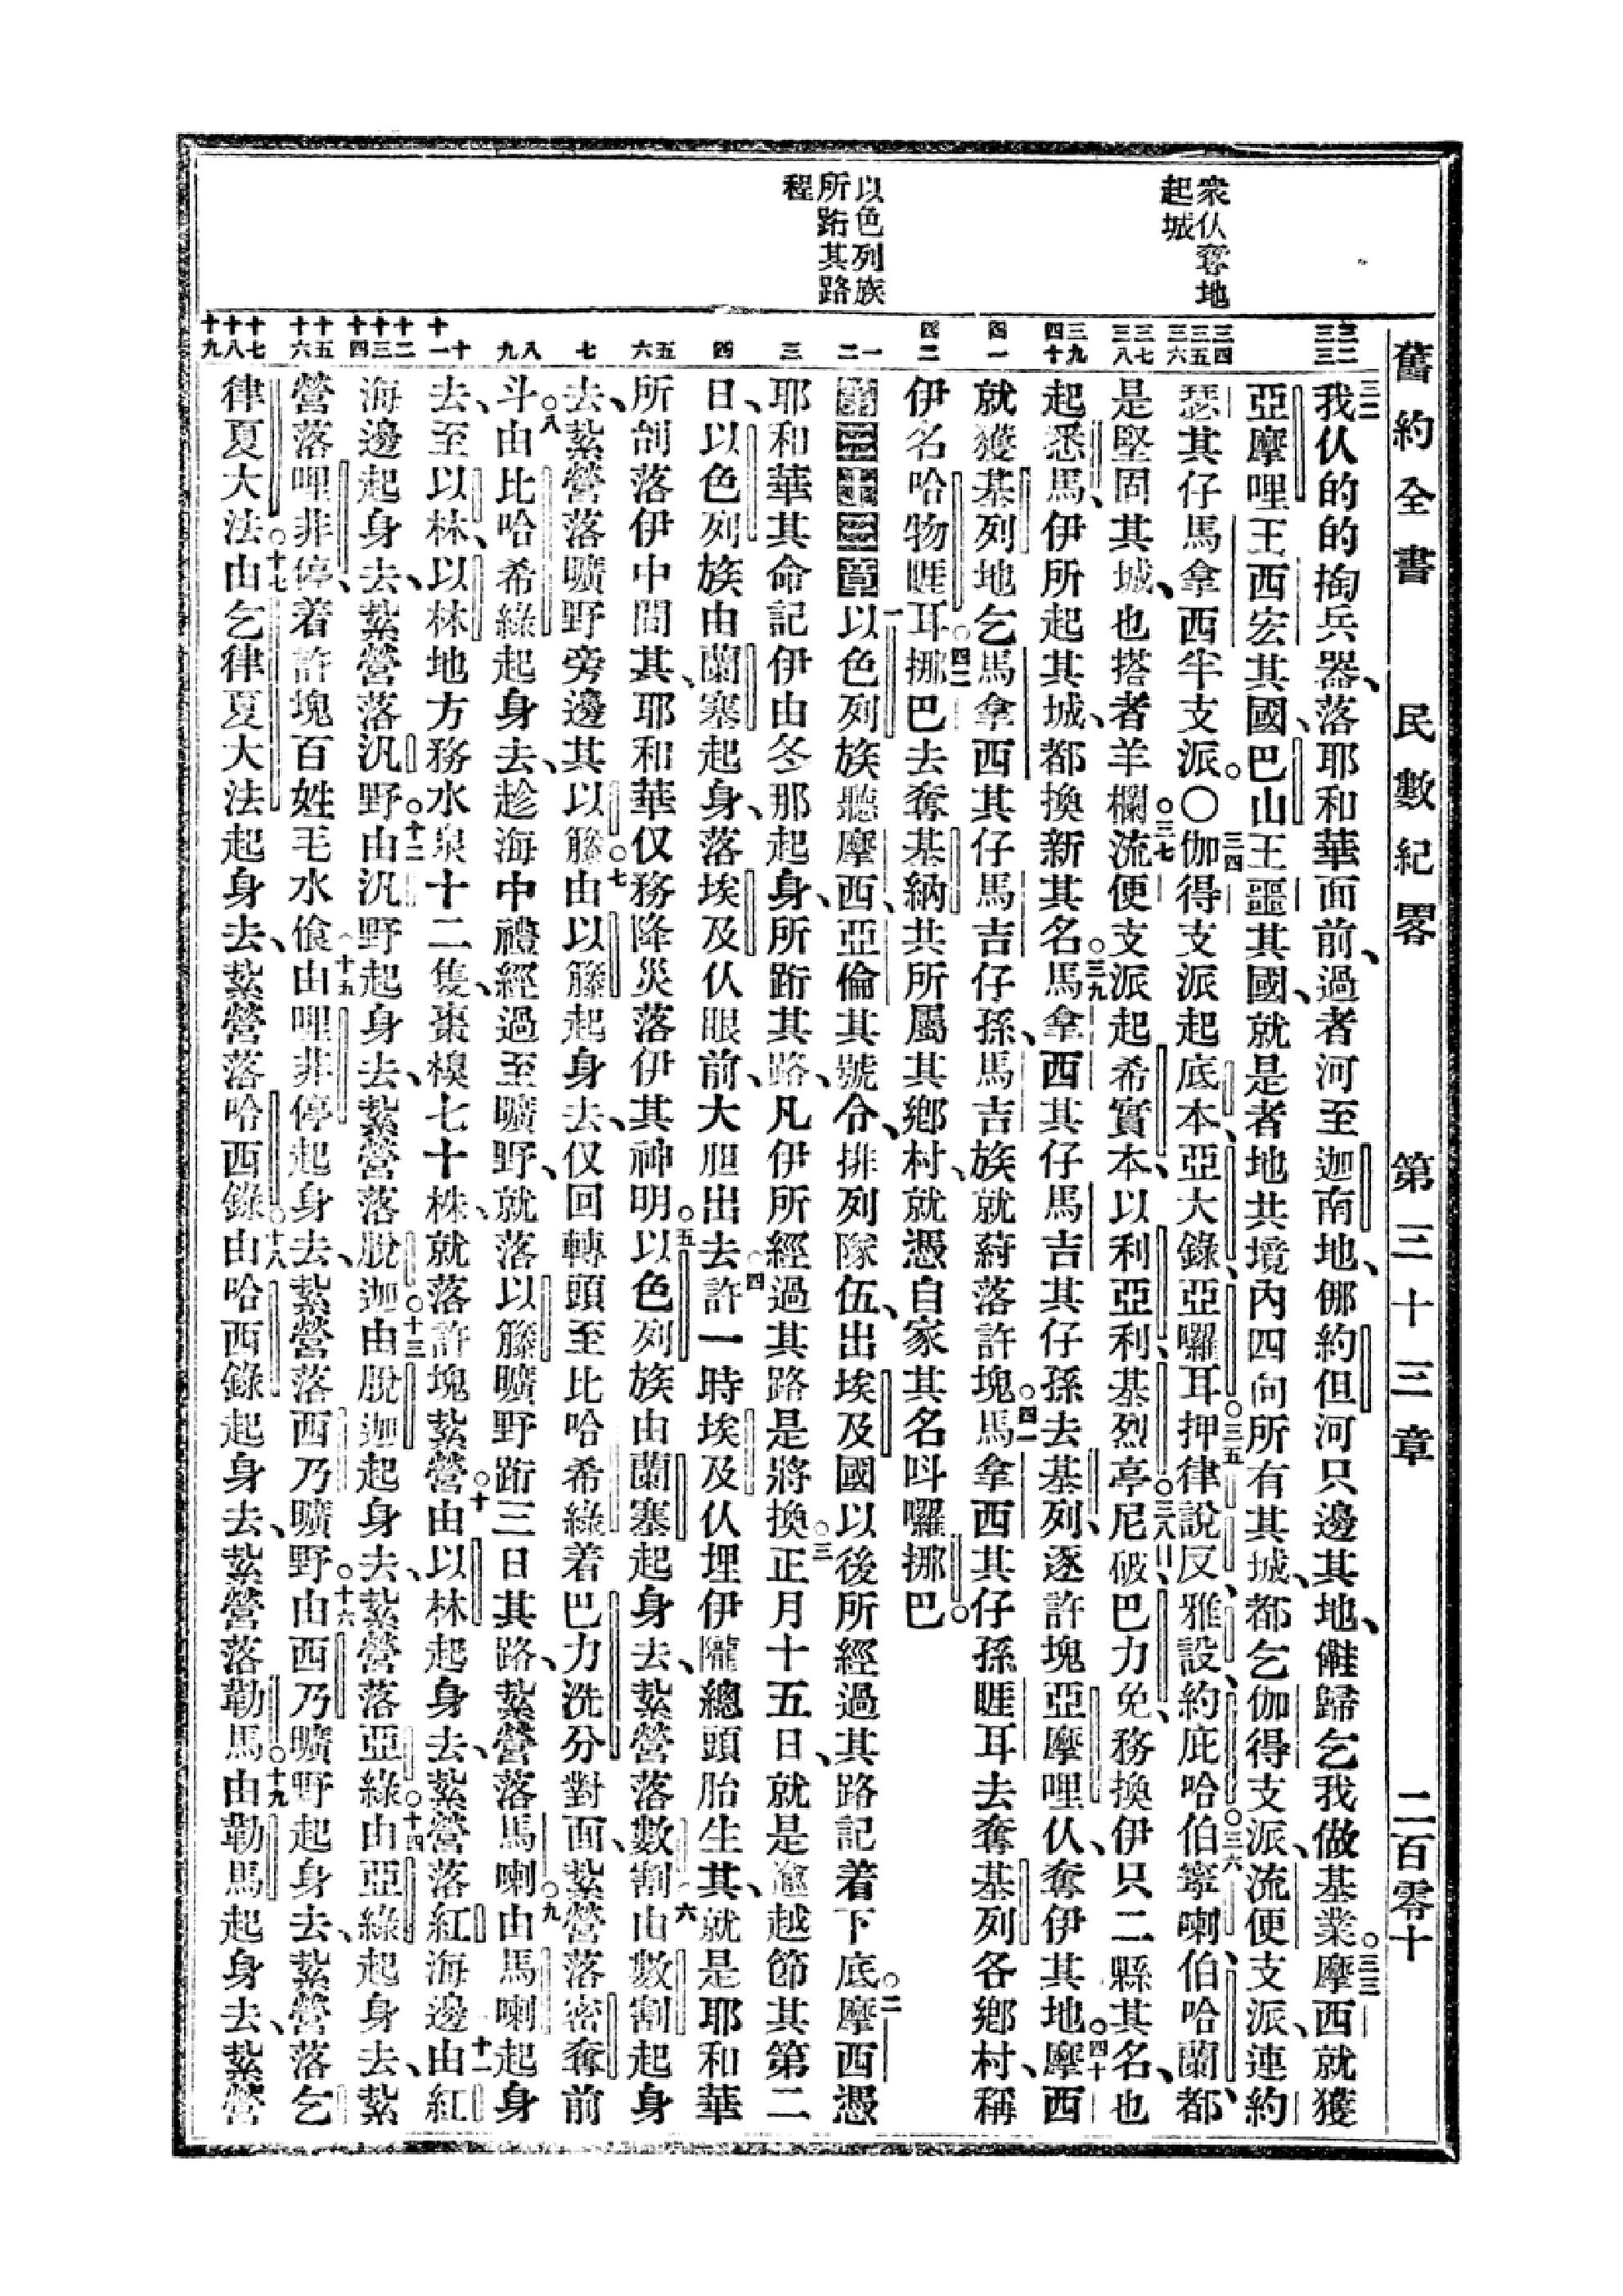 舊約全書　民數紀畧　第三十三章　二百零十
衆仈奪地
起城
以色列族
所跧其路
程
我仈的的掏兵器、落耶和華面前、過者河至迦南地、㑚約但河只邊其地、㒕歸乞我做基業。摩西就獲
亞摩哩王西宏其國、巴山王噩其國、就是者地共境內四向所有其城、都乞伽得支派、流便支派、連約
瑟其仔馬拿西半支派。〇伽得支派起底本、亞大錄、亞囉耳、押律說反、雅設、約庇哈、伯寧喇、伯哈蘭、都
是堅固其城、也搭者羊欄。流便支派起希實本、以利亞利、基烈亭、尼破、巴力免、務換伊只二縣其名、也
起悉馬、伊所起其城、都換新其名。馬拿西其仔馬吉其仔孫去基列、逐許塊亞摩哩仈、奪伊其地。摩西
就獲基列地乞馬拿西其仔馬吉仔孫、馬吉族就蔚落許塊。馬拿西其仔孫睚耳去奪基列各鄉村、稱
伊名哈物睚耳。挪巴去奪基納共所屬其鄉村、就憑自家其名呌囉挪巴。
第三十三章以色列族聽摩西、亞倫其號令、排列隊伍、出埃及國以後所經過其路、記着下底。摩西憑
耶和華其命記伊由冬那起身、所跧其路、凡伊所經過其路是將換。正月十五日、就是逾越節其第二
日、以色列族由蘭塞起身、落埃及仈眼前、大胆出去。許一時埃及仈埋伊隴總頭胎生其、就是耶和華
所刣落伊中間其、耶和華仅務降災落伊其神明。以色列族由蘭塞起身去、紮營落數割。由數割起身
去、紮營落曠野旁邊其以籐。由以籐起身去、仅回轉頭至比哈希綠、着巴力洗分對面、紮營落密奪前
斗。由比哈希綠起身去、趁海中禮經過至曠野、就落以籐曠野跧三日其路、紮營落馬喇。由馬喇起身
去、至以林、以林地方務水泉十二隻、棗模七十株、就落許塊紮營。由以林起身去、紮營落紅海邊。由紅
海邊起身去、紮營落汎野。由汎野起身去、紮營落脫迦。由脫迦起身去、紮營落亞綠。由亞綠起身去、紮
營落哩非停、着許塊百姓毛水飲。由哩非停起身去、紮營落西乃曠野。由西乃曠野起身去、紮營落乞
律夏大法。由乞律夏大法起身去、紮營落哈西錄。由哈西錄起身去、紮營落勒馬。由勒馬起身去、紮營